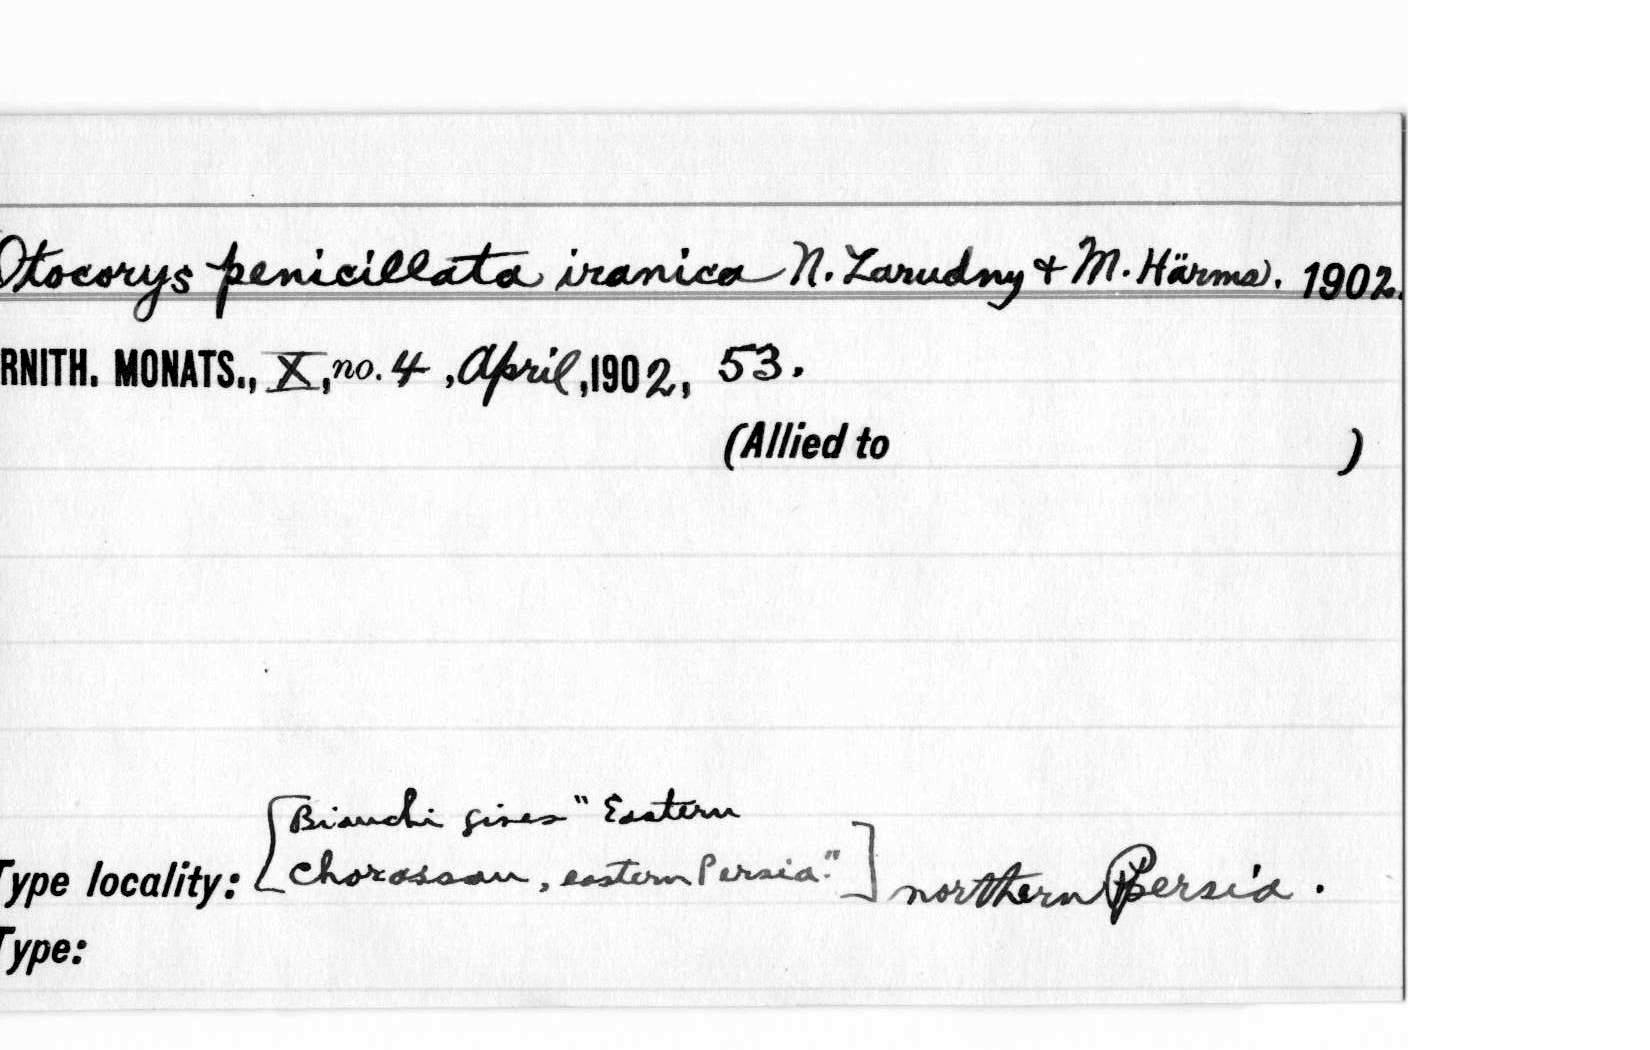 Otocorys penicillata iranica N. Zarudny & M. Härms. 1902.
RNITH. MONATS., X, no. 4, April, 1902, 53.
(Allied to )
[Bianchi gives "Eastern
Type locality: Chorassan, eastern Persia."] northern Persia.
Type: